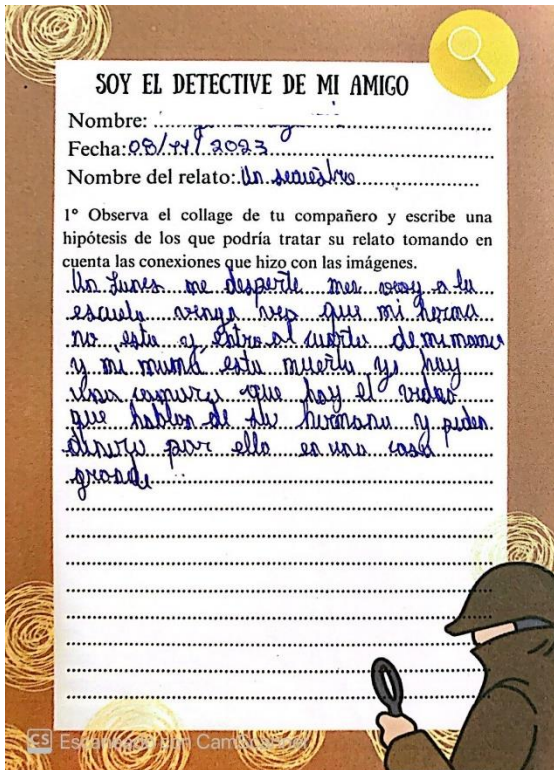 SOY EL DETECTIVE DE MI AMIGO
Nombre:
Fecha: 08/11/2023
Nombre del relato: Un secuestro
1° Observa el collage de tu compañero y escribe una
hipótesis de los que podría tratar su relato tomando en
cuenta las conexiones que hizo con las imágenes.
Un Lunes me desperte mea voy a la
escuela vengo veo que mi herma
no esta y entro al cuarto de mi mama
y mi mumá esta muerta ys hay
una camara que hay el video
que hablan de su hermana y piden
dinero por ella en una casa
grande
CS Escaneado con CamScanner